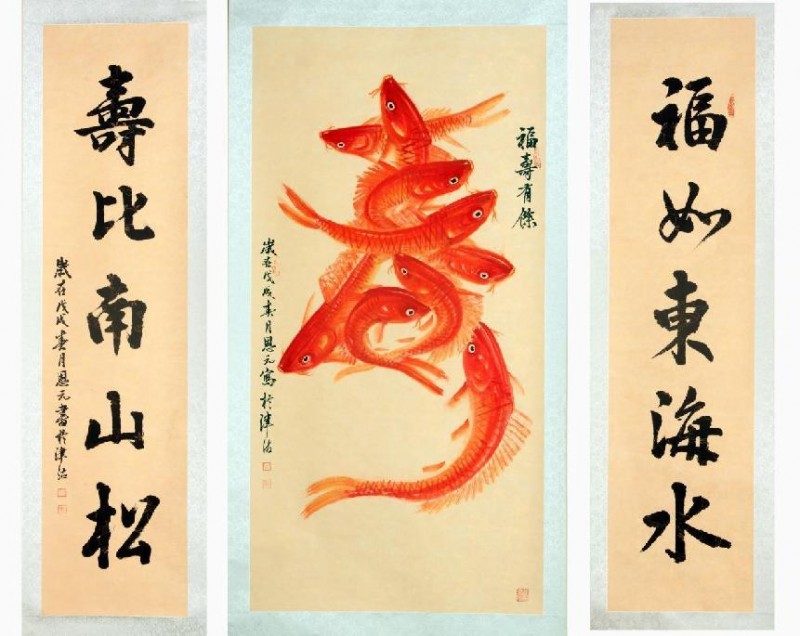 福如東海水
福壽有餘
歲在戊戌春月恩元寫於津沽
壽比南山松
歲在戊戌春月恩元書於津沽